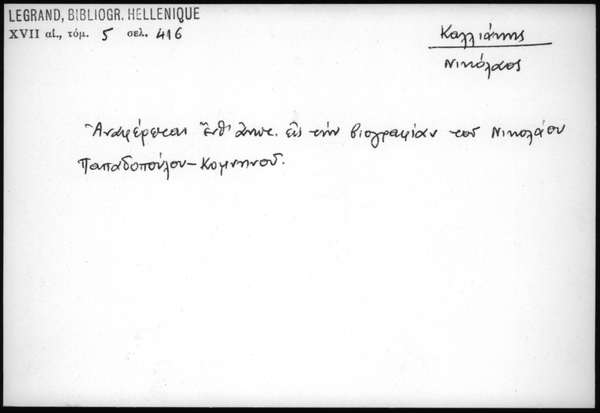 LEGRAND, BIBLIOGR. HELLENIQUE
XVII αἰ., τόμ. 5 σελ. 416
Καλλιάκης
Νικόλαος
Ἀναφέρεται ἔνθ' ἀνωτ. εἰς τὴν βιογραφίαν τοῦ Νικολάου
Παπαδοπούλου-Κομνηνοῦ.